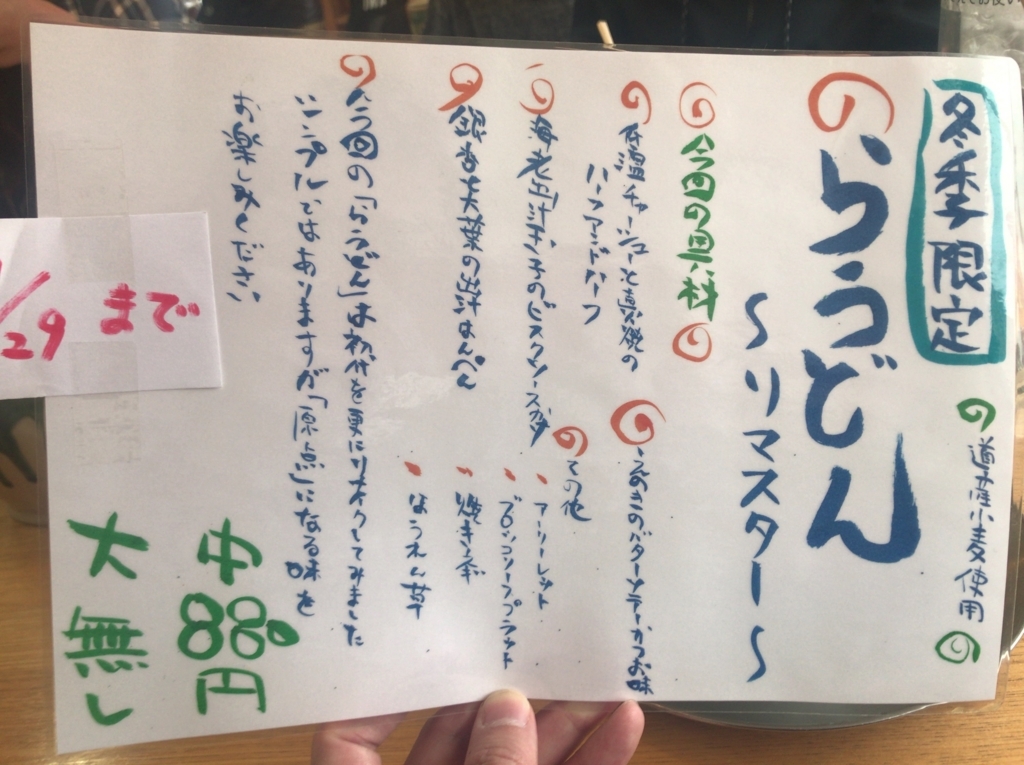 冬季限定
らうどん
〜リマスター〜
道産小麦使用
今回の具料
低温チャーシューと真空焼の
ハーフアンドハーフ
海老出汁
のビスクソース
銀杏大葉の出汁はんぺん
えのきのバターソテーかつお味
その他
・アーリーレッド
・ブロッコリースプラウト
・焼きネギ
・ほうれん草
今回の「らうどん」は初代を更にリメイクしてみました
シンプルではありますが「原点」になる味を
お楽しみください
中 880円
大 無し
/29 まで